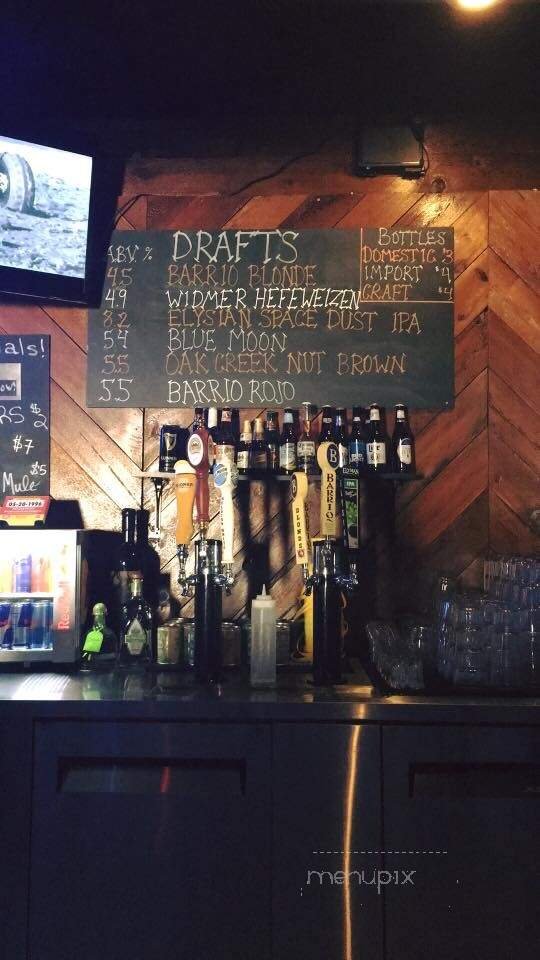 ABV % DRAFTS
4.5 BARRIO BLONDE
4.9 WIDMER HEFEWEIZEN
8.2 ELYSIAN SPACE DUST IPA
5.4 BLUE MOON
5.5 OAK CREEK NUT BROWN
5.5 BARRIO ROJO
BOTTLES
DOMESTIC $3
IMPORT $4
CRAFT $4
als!
RS $2
$7
$5
Mule
05-20-1996
B
BARRIO
BLONDE
IPA
menupix